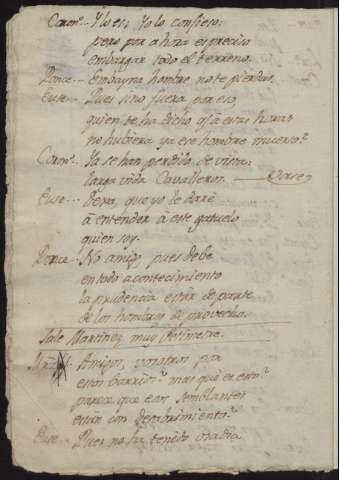 Coron.. Y lo es; Yo lo confieso:
pero por ahora es preciso
embargar todo el terreno.
Ponce.. Embayna hombre no te pierdas.
Euse... Pues si no fuera por eso,
quien te ha dicho q.e a estas horas
no hubiera ya ese hombre muerto?
Coron.. Ya se han perdido de vista:
larga vida Cavalleros. Vase
Euse... Dexa, que yo le daré
á entender á este
quien soy.
Ponce.. No amigo, pues debe
en todo acontecimiento
la prudencia estar de parte
de los hombres de provecho.
Sale Martinez muy Petimetre.
Amigos, vosotros por
estos barrios? mas que es esto?
parece que esos semblantes
estan con desabrimiento?
Euse.. Pues no ha tenido osadia